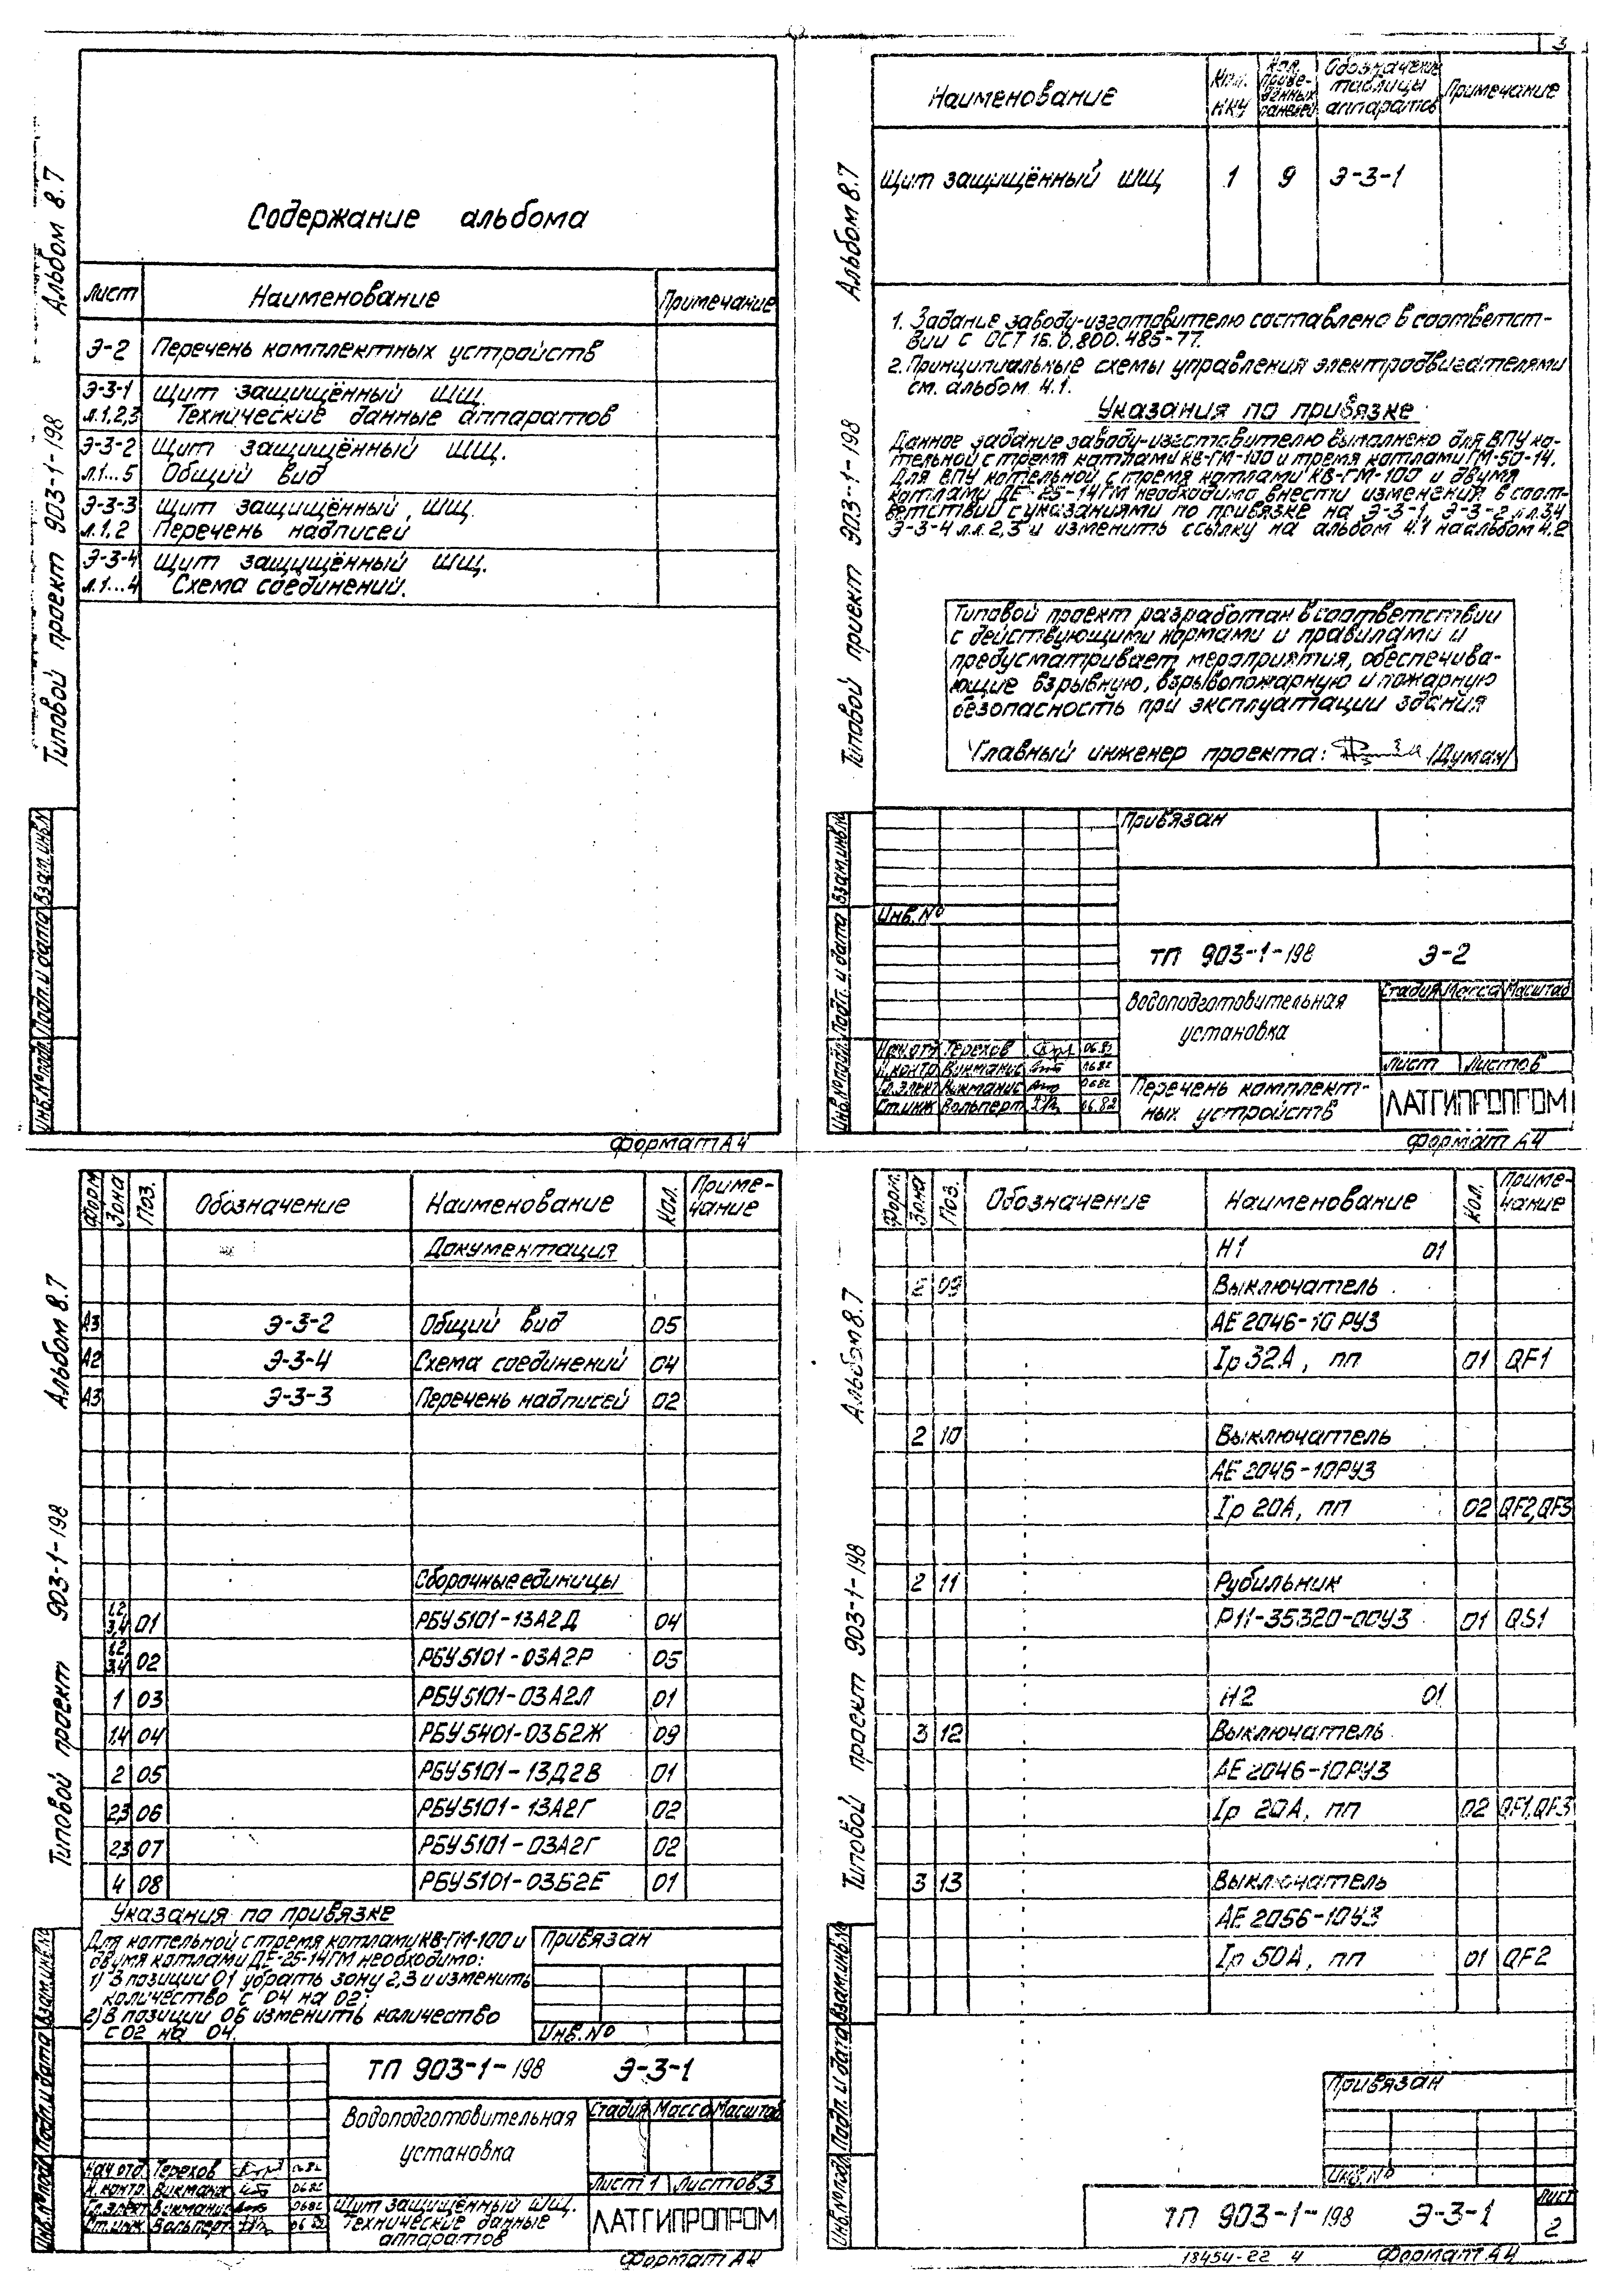 Альбом 8.7
Типовой проект 903-1-198
Содержание альбома
Лист Наименование Примечание
Э-2 Перечень комплектных устройств
Э-3-1 Щит защищённый ШЩ.
л.1,2,3 Технические данные аппаратов
Э-3-2 Щит защищённый ШЩ.
л.1...5 Общий вид
Э-3-3 Щит защищённый ШЩ.
л.1,2 Перечень надписей
Э-3-4 Щит защищённый ШЩ.
л.1...4 Схема соединений.
Инв.№подл. Подп. и дата Взам.инв.№
Формат А4
3
Альбом 8.7
Типовой проект 903-1-198
Наименование Кол. НКУ Кол. приведённых панелей Обозначение таблицы аппаратов Примечание
Щит защищённый ШЩ 1 9 Э-3-1
1. Задание заводу-изготовителю составлено в соответст-
вии с ОСТ 16.0.800.485-77.
2. Принципиальные схемы управления электродвигателями
см. альбом 4.1.
Указания по привязке
Данное задание заводу-изготовителю выполнено для ВПУ ко-
тельной с тремя котлами КВ-ГМ-100 и тремя котлами ГМ-50-14.
Для ВПУ котельной с тремя котлами КВ-ГМ-100 и двумя
котлами ДЕ-25-14ГМ необходимо внести изменения в соот-
ветствии с указаниями по привязке на Э-3-1, Э-3-2 л.л.3,4
Э-3-4 л.л.2,3 и изменить ссылку на альбом 4.1 на альбом 4.2
Типовой проект разработан в соответствии
с действующими нормами и правилами и
предусматривает мероприятия, обеспечива-
ющие взрывную, взрывопожарную и пожарную
безопасность при эксплуатации здания
Главный инженер проекта: /Думан/
Привязан
Инв.№
ТП 903-1-198 Э-2
Водоподготовительная
установка
Стадия Масса Масштаб
Лист Листов
Нач.отд Терехов
Н.контр Викманис 0682
Гл.элект Викманис 0682
Ст.инж Вольперт 06.82
Перечень комплект-
ных устройств
ЛАТГИПРОПРОМ
Инв.№подл. Подп. и дата Взам.инв.№
Формат А4
Альбом 8.7
Типовой проект 903-1-198
Форм Зона Поз. Обозначение Наименование Кол. Приме-
чание
Документация
А3 Э-3-2 Общий вид 05
А2 Э-3-4 Схема соединений 04
А3 Э-3-3 Перечень надписей 02
Сборочные единицы
1,2,
3,4 01 РБУ5101-13А2Д 04
1,2
3,4 02 РБУ5101-03А2Р 05
1 03 РБУ5101-03А2Л 01
1,4 04 РБУ5401-03Б2Ж 09
2 05 РБУ5101-13Д2В 01
2,3 06 РБУ5101-13А2Г 02
2,3 07 РБУ5101-03А2Г 02
4 08 РБУ5101-03Б2Е 01
Указания по привязке
Для котельной с тремя котлами КВ-ГМ-100 и
двумя котлами ДЕ-25-14ГМ необходимо:
1) В позиции 01 убрать зону 2,3 и изменить
количество с 04 на 02;
2) В позиции 06 изменить количество
с 02 на 04.
Привязан
Инв.№
ТП 903-1-198 Э-3-1
Водоподготовительная
установка
Стадия Масса Масштаб
Лист 1 Листов 3
Нач.отд Терехов
Н.контр. Викмана 0682
Гл.элект Викманис 0682
Ст.инж Вольперт 06 82
Щит защищённый ШЩ.
Технические данные
аппаратов
ЛАТГИПРОПРОМ
Инв.№подл Подп. и дата Взам.инв.№
Формат А4
Альбом 8.7
Типовой проект 903-1-198
Форм. Зона Поз. Обозначение Наименование Кол. Приме-
чание
Н1 01
2 09 Выключатель
АЕ 2046-10РУ3
Iр 32А, пп 01 QF1
2 10 Выключатель
АЕ 2046-10РУ3
Iр 20А, пп 02 QF2,QF3
2 11 Рубильник
Р11-35320-00У3 01 QS1
Н2 01
3 12 Выключатель
АЕ 2046-10РУ3
Iр 20А, пп 02 QF1,QF3
3 13 Выключатель
АЕ 2056-10У3
Iр 50А, пп 01 QF2
Привязан
Инв.№
ТП 903-1-198 Э-3-1
Лист
2
Инв.№подл Подп. и дата Взам.инв.№
18454-22 4 Формат А4